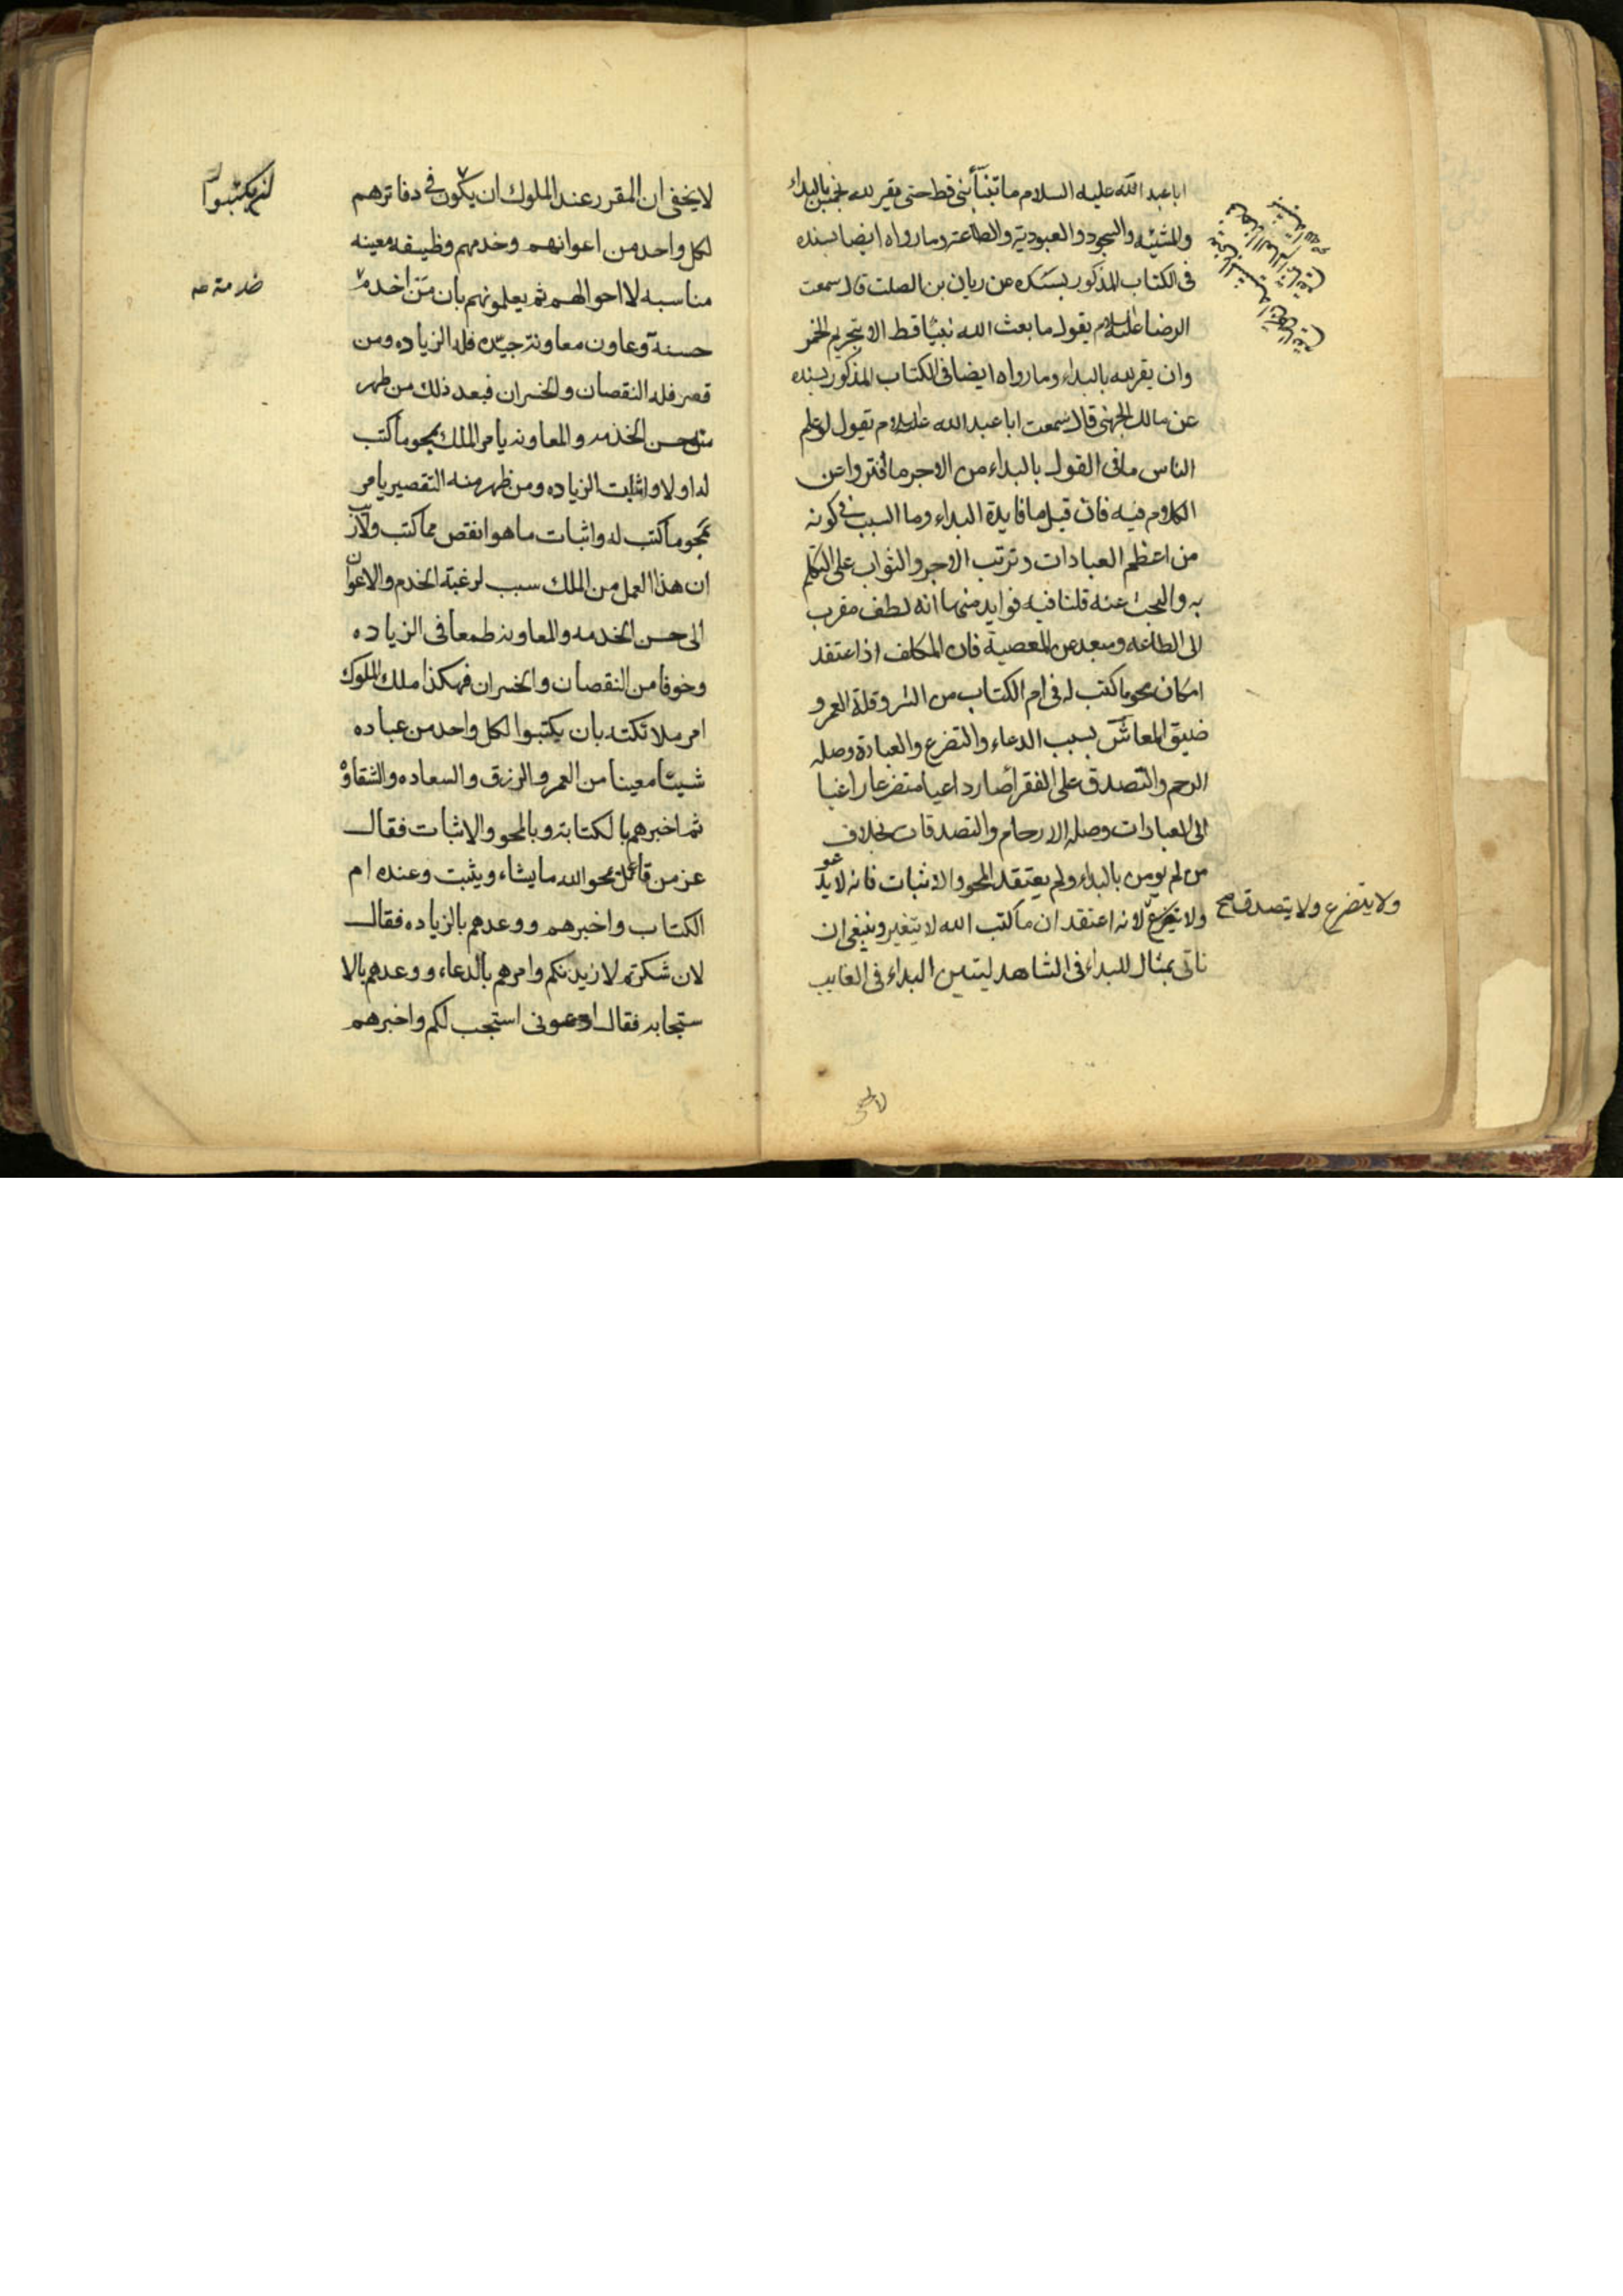 ابا عبد الله عليه السلام ما تنبّأ نبى قط حتى يقر لله بخمس بالبداء
والمشيه والسجود والعبوديه والطاعة وما رواه ايضا بسنده
فى الكتاب المذكور بسنده عن ريان بن الصلت قال سمعت
الرضا عليه السلام يقول ما بعث الله نبيّا قط الا بتحريم الخمر
وان يقر لله بالبداء وما رواه ايضا فى الكتاب المذكور بسنده
عن مالك الجهنى قال سمعت ابا عبد الله عليه السلام يقول لو علم
الناس ما فى القول بالبداء من الاجر ما فتروا عن
الكلام فيه فان قيل ما فايدة البداء وما السبب فى كونه
من اعظم العبادات وترتب الاجر والثواب على التكلم
به والبحث عنه قلنا فيه فوايد منها انه لطف مقرب
الى الطاعه ومبعد عن المعصية فان المكلف اذا اعتقد
امكان محو ما كتب له فى ام الكتاب من الشر وقلة العمر و
ضيق المعاش بسبب الدعاء والتضرع والعبادة وصله
الرحم والتصدق على الفقرا صار داعيا متضرعا راغبا
الى العبادات وصله الارحام والتصدقات بخلاف
من لم يومن بالبداء ولم يعتقد المحو والاثبات فانه لا يدعو
ولا يتضرع ولا يتصدق صح
ولا يتضرع لانه اعتقد ان ما كتب الله لا يتغير وينبغى ان
ناتى بمثال للبداء فى الشاهد ليتبين البداء فى الغايب
لا يخفى
لا يخفى ان المقرر عند الملوك ان يكون فى دفاترهم
يكتبوا
لكل واحد من اعوانهم وخدمهم وظيفه معينه
مناسبه لاحوالهم ثم يعلمونهم بان من اخدم
خدمة
حسنة وعاون معاونة جيّده فله الزياده ومن
قصر فله النقصان والخسران فبعد ذلك من ظهر
منه حسن الخدمه والمعاونه يامر الملك بمحو ما كتب
له اولا واثبات الزياده ومن ظهر منه التقصير يامر
بمحو ما كتب له واثبات ما هو انقص مما كتب ولا ريب
ان هذا العمل من الملك سبب لرغبة الخدم والاعوان
الى حسن الخدمه والمعاونه طمعا فى الزياده
وخوفا من النقصان والخسران فهكذا ملك الملوك
امر ملائكته بان يكتبوا لكل واحد من عباده
شيئا معينا من العمر والرزق والسعاده والشقاوة
ثم اخبرهم بالكتابة وبالمحو والاثبات فقال
عز من قائل يمحو الله ما يشاء ويثبت وعنده ام
الكتاب واخبرهم ووعدهم بالزياده فقال
لان شكرتم لازيدنكم وامرهم بالدعاء ووعدهم بالا
ستجابه فقال ادعونى استجب لكم واخبرهم